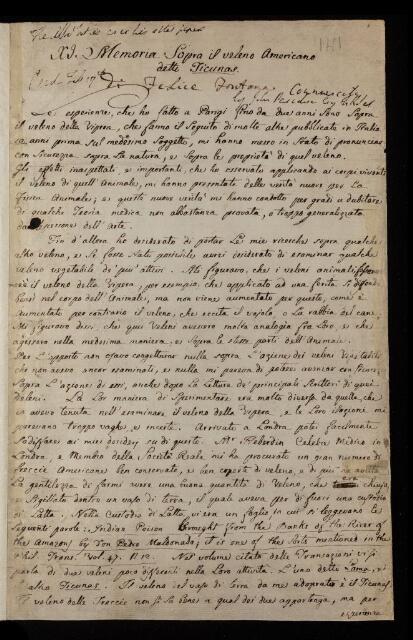 XI. Memoria Sopra il veleno Americano
detto Ticunas.
Di Felice Fontana. Comm
Le esperienze, che ho fatto a Parigi fino da due anni sono Sopra
il veleno della Vipera, che fanno il Seguito di molte altre pubblicate in Italia
anni prima sul medesimo Soggetto, mi hanno messo in stato di pronunciar
con Sicurezza sopra la natura, e sopra le proprietà di quel veleno.
Gli effetti inaspettati e importanti, che ho osservato applicando ai corpi viventi
il veleno di quell'Animale, mi hanno presentate delle verità nuove per la
Fisica Animale; e queste nuove verità mi hanno condotto per gradi a dubitare
di qualche Teoria medica non abbastanza provata, o troppo generalizzata
dalle persone dell'Arte.
Fin d'allora ho desiderato di portar le mie ricerche sopra qualche
altro veleno, e Se fosse stato possibile avrei desiderato di esaminar qualche
veleno vegetabile de' piu' attivi. Mi figuravo, che i veleni animali,
il veleno della Vipera, per esempio, che applicato ad una ferita si diffon-
desse nel corpo dell'Animale, ma non viene aumentato per questo, come è
aumentato per contrario il veleno, che eccita il vajolo, o la rabbia del cane.
Mi figuravo dico, che quei veleni avessero molta analogia fra loro, e che
agissero nella medesima maniera, e sopra le stesse parti dell'Animale.
Per l'opposto non osavo congetturar nulla sopra l'azione dei veleni Vegetabili
che non avevo ancor esaminati, e nulla mi pareva di potere avanzar con sicur-
Sopra l'azione di essi, anche dopo la Lettura de' principali Scrittori di quei
Veleni. La lor maniera di Sperimentare era molto diversa da quella, che
io avevo tenuta nell'esaminare il veleno della Vipera, e le loro illazioni mi
parevano troppo vaghe, e incerte. Arrivato a Londra potei facilmente
Sodisfare ai miei desiderj su di questo. Mr. Heberden Celebre Medico in
Londra, e Membro della Società Reale mi ha procurato un gran numero di
Freccie Americane ben conservate, e ben coperte di veleno, e di piu' ha avuta
la gentilezza di farmi avere una buona quantità di Veleno, che era chiuso,
e Sigillato dentro un vaso di terra, il quale aveva per di fuori una custodia
di Latta. Nella Custodia di Latta, vi era un foglio in cui si leggevano le
Seguenti parole: Indian Poison brought from the Banks of the River of
the Amazons by Don Pedro Maldonado; it is one of the sorts mentioned in the
Phil. Trans. Vol. 47. N. 12. Nel volume citato delle Transazioni vi si
parla di due veleni poco differenti nella loro attività. L'uno detto Lama, e l'
altro Ticunas. Il veleno del vaso di terra da me adoprato è il Ticunas.
Il veleno delle Freccie non si sa bene a qual dei due appartenga, ma per
esperienze